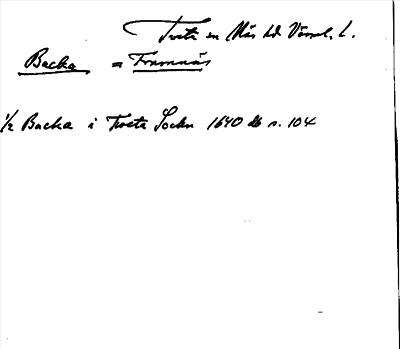 Tveta sn Näs hd Värml. l.
Backa = Framnäs
1/2 Backa i Tveta Sockn 1640 db s. 104